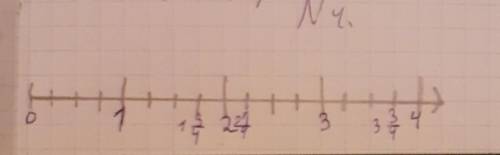 N4.
0 1 1 3/4 2 2 1/4 3 3 3/4 4